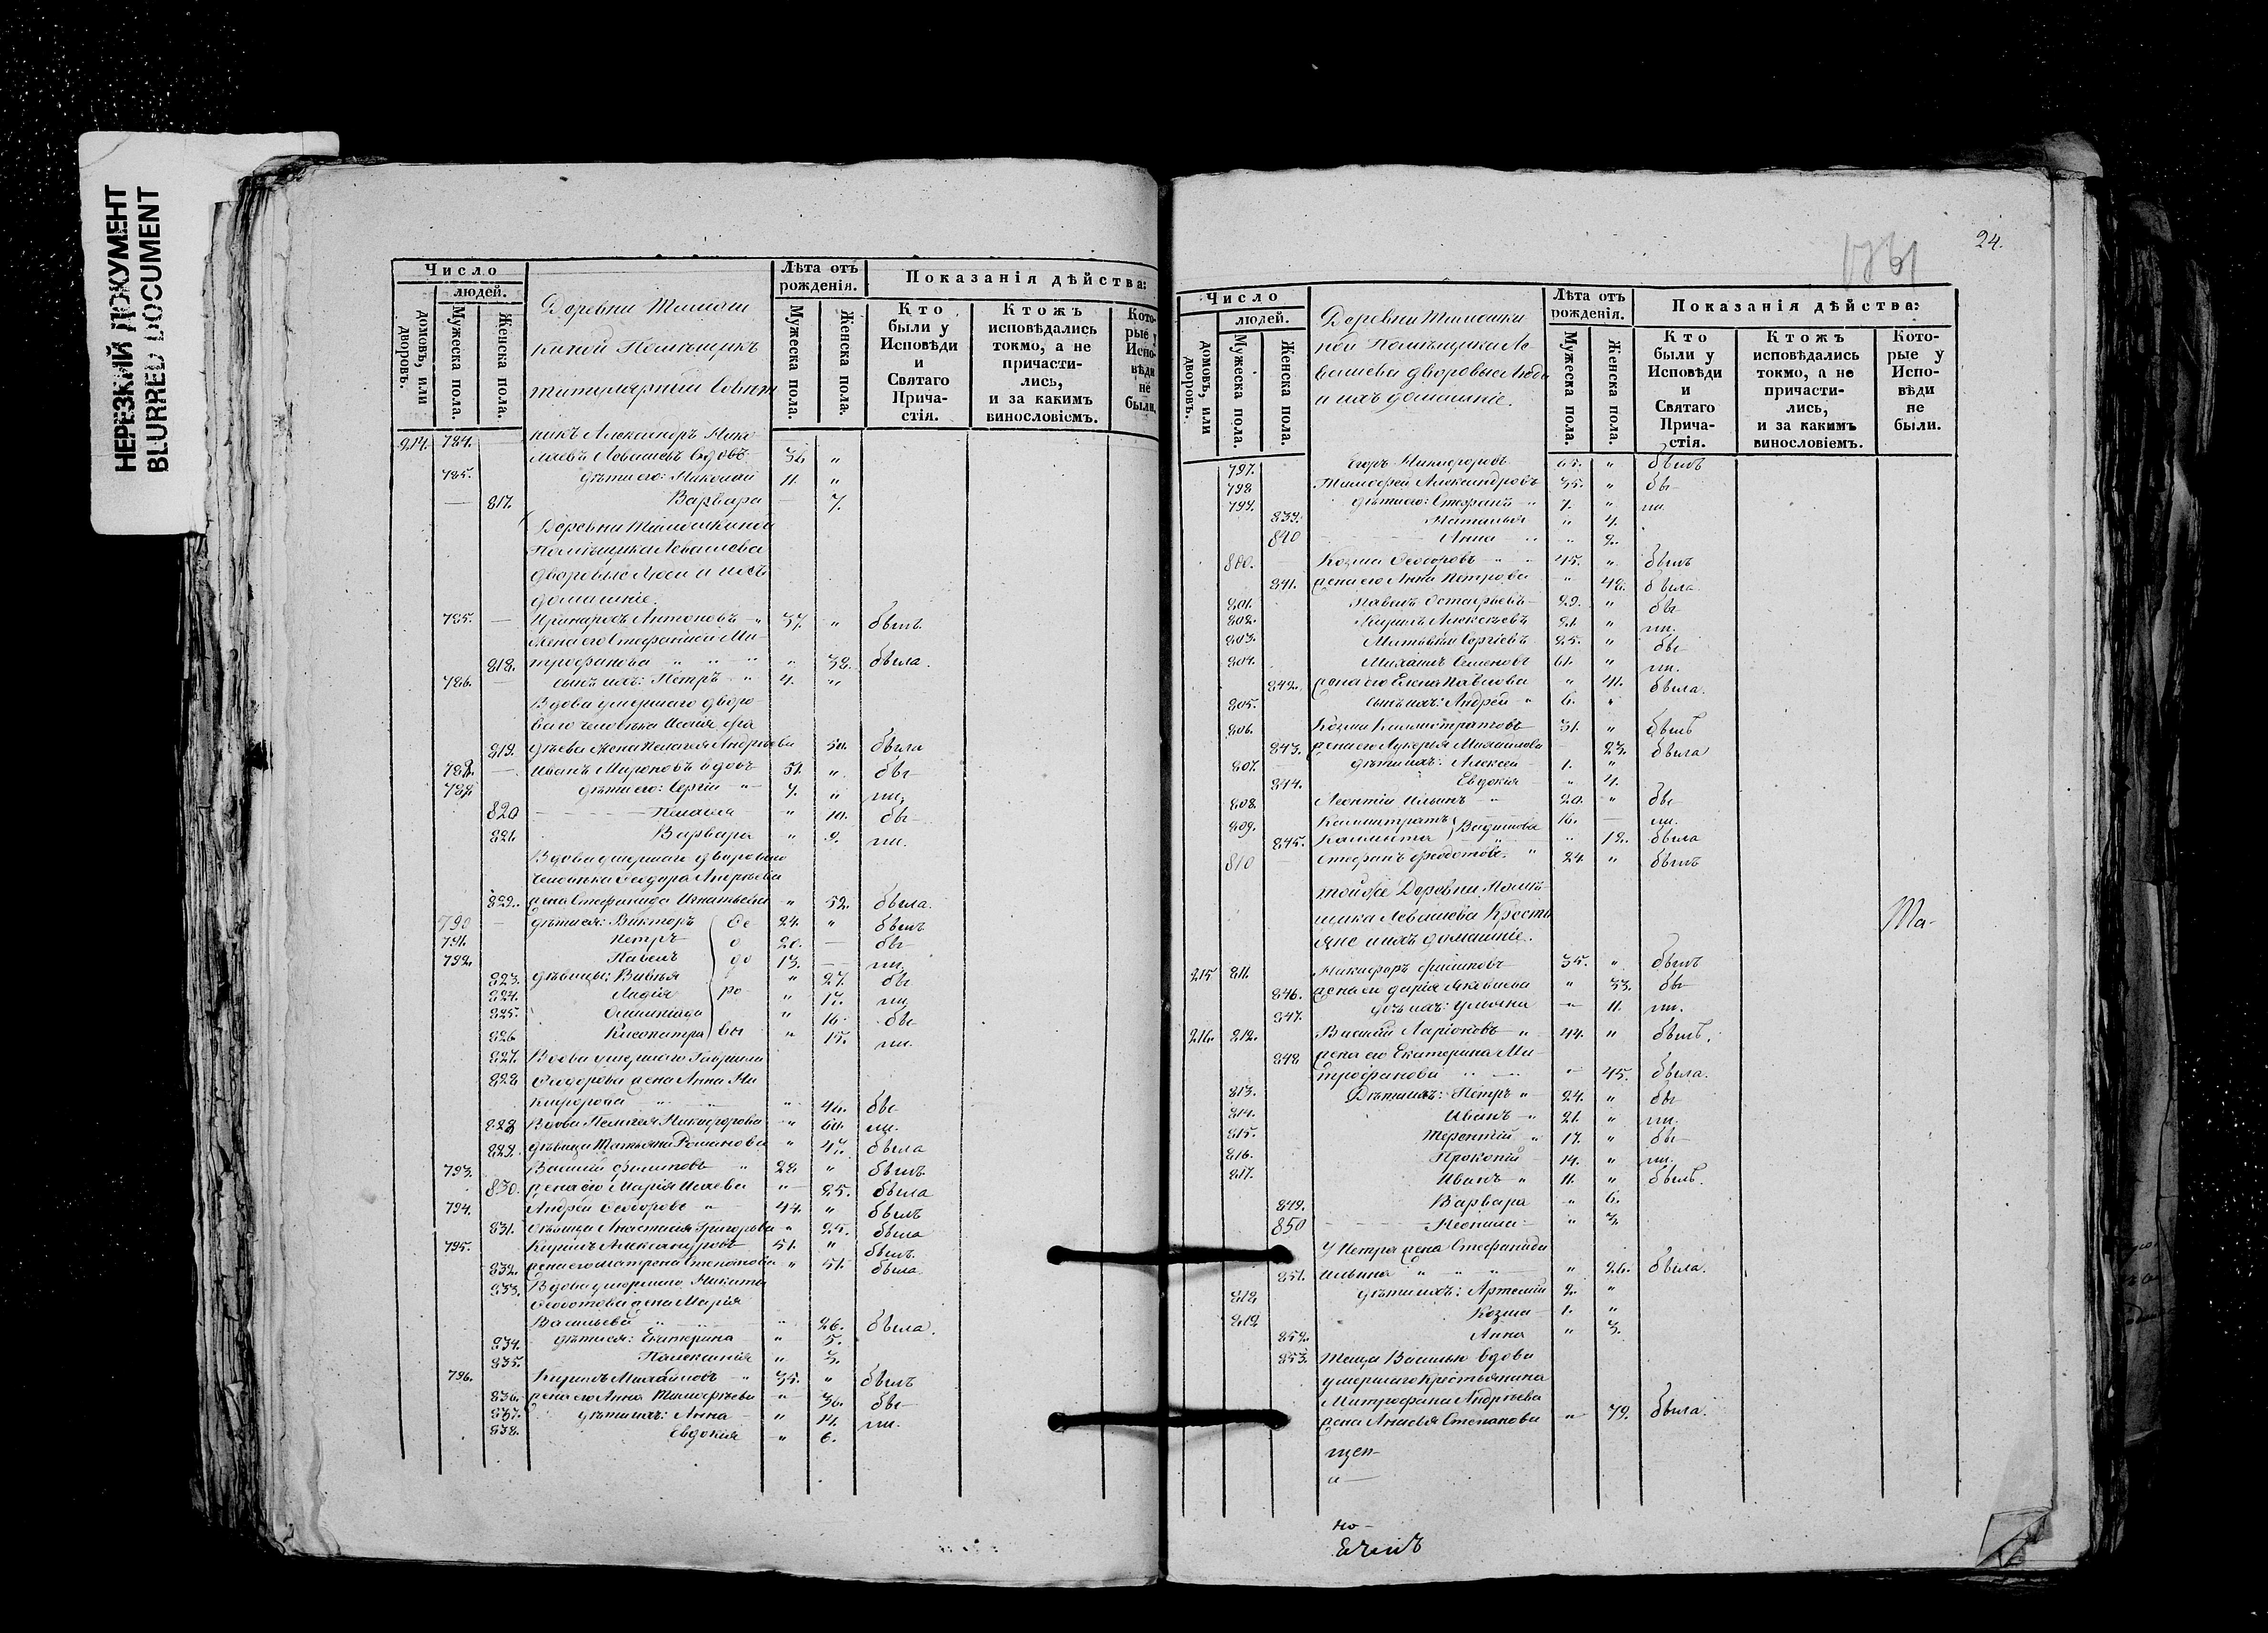 НЕРЕЗКИЙ ДОКУМЕНТ
BLURRED DOCUMENT
Число
людей.
домовъ, или дворовъ.
Мужеска пола.
Женска пола.
Лѣта отъ рожденія.
Мужеска пола.
Женска пола.
Показанія дѣйства:
Кто были у Исповѣди и Святаго Прича-стія.
Ктожъ исповѣдались токмо, а не причасти-лись, и за какимъ винословіемъ.
Кото-рые у Испо-вѣди не были.
Деревни Тимош
киной Помѣщикъ
титулярный Совѣт
214. 784. никъ Александръ Нико
лаевъ Левашевъ вдовъ 36 "
785. дѣти его: Николай 11. "
817. Варвара 7.
Деревни Тимошкиной
Помѣщика Левашева
дворовые люди и ихъ
домашніе.
785. Антоновъ " 37. " былъ
Жена его Стефанида Ми-
818. трофанова " " " 38. была.
786. сынъ ихъ: Петръ " 4. "
Вдова умершаго дворо-
ваго человѣка
819. жена Пелагея Андреева 50. была
788. Иванъ Мироновъ вдовъ 51. " бы-
789. дѣти его: Сергій " 7. " ли,
820 Пелагея " 10. бы-
821. Варвара " 9. ли.
Вдова умершаго двороваго
человѣка Ѳеодора
822. жена Стефанида Игнатьева " 52. была.
790 дѣти ея: Викторъ Ѳе 24. " былъ
791. Петръ о 20. бы-
792. Павелъ до 13. ли,
823. дѣвицы: " 27. бы-
824. Лидія ро- " 17. ли,
825. Олимпіада " 16. бы-
826 Клеопатра вы " 15. ли.
827. Вдова умершаго Гавріила
828 Ѳеодорова жена Анна Ни
кифорова " 46. бы-
828 Вдова Пелагея Никифорова " 60. ли.
829. дѣвица Татьяна Романова " 47. была
793. Василій Филиповъ " 28. " былъ
830. жена его Марія Исаева " 25. была
794. Андрей Ѳеодоровъ " 44. " былъ
831. дѣвица Анастасія Григорьева " 25. была
795. Кирилъ Александровъ 51. " былъ.
832. жена его Матрена " 51. была.
833. Вдова умершаго Никиты
Ѳеодотова жена Марія
Васильева " 26. была.
834. дѣти ея: Екатерина " 5.
835. " 3.
796. Кирилъ Михайловъ " 35. " былъ
836. жена его Анна Тимофѣева " 36. бы-
837. дѣти ихъ: Анна " 14. ли.
838. Евдокія " 6.
24.
Число
людей.
домовъ, или дворовъ.
Мужеска пола.
Женска пола.
Лѣта отъ рожденія.
Мужеска пола.
Женска пола.
Показанія дѣйства:
Кто были у Исповѣди и Святаго Прича-стія.
Ктожъ исповѣдались токмо, а не причасти-лись, и за какимъ винословіемъ.
Кото-рые у Испо-вѣди не были.
Деревни Тимошки
ной Помѣщика Ле
вашева дворовые люди
и ихъ домашніе.
797. Егоръ Никифоровъ 65. " былъ
798 Тимофей Александровъ 35. " бы-
799. дѣти его: Стефанъ 7. " ли.
839. Наталья " 4.
840 Анна " 2.
800. Козма Ѳеодоровъ 45. " былъ
841. жена его Анна Петрова " 48. была.
801. Павелъ 29. " бы-
802. Кирилъ Алексѣевъ 21. " ли.
803. Матвѣй Сергіевъ 25. " бы-
804. Михаилъ Семеновъ 61. " ли.
842. жена его Елена Павлова " 41. была.
805. сынъ ихъ: Андрей " 6. "
806. Козма Калистратовъ 31. " былъ
843. жена его Лукерья Михайлова 23. была
807. дѣти ихъ: Алексѣй 1. "
844. Евдокія " 4.
808. Леонтій Ильинъ 20. " бы-
809. Калистратъ 16. ли.
845. " 12. была
810 Стефанъ Ѳеодотовъ " 24 " былъ
той же Деревни Помѣ-
щика Левашева Кресть
яне и ихъ домашніе.
Та-
215 811. Никифоръ Филиповъ 35. " былъ
846. жена его Дарія Яковлева " 33. бы-
847. дочь ихъ: Ульяна 11. ли.
216. 812. Василій Ларіоновъ " 44. " былъ.
848 жена его Екатерина Ми-
трофанова 45. была.
813. Дѣти ихъ: Петръ " 24. " бы-
814. Иванъ " 21. " ли.
815. Терентій " 17. " бы-
816. Прокопій 14. " ли.
817. Иванъ " 11. " былъ.
849. Варвара " 6.
850 Неонила " 3.
У Петра жена Стефанида
851. Ильина " 26. была.
818 дѣти ихъ: Артемій 2. "
819 Козма 1. "
852. Анна " 3.
853. Теща Василію вдова
умершаго крестьянина
Митрофана Андреева
жена Степанова " 79. была.
щен-
и-
но-